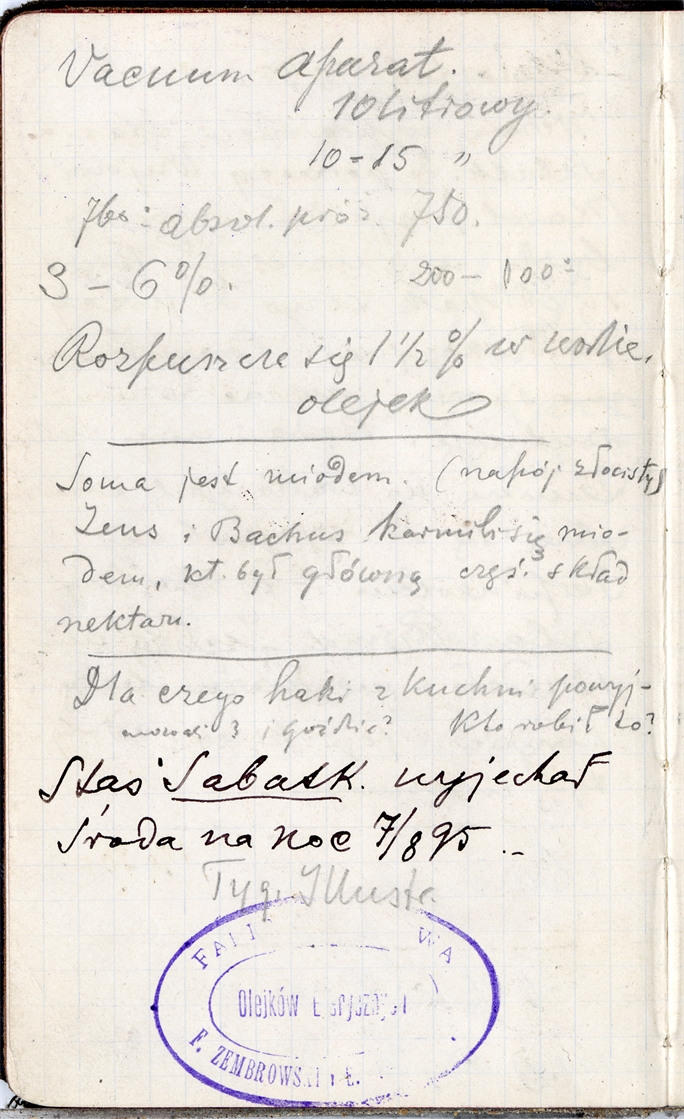 Vacuum aparat.
10 litrowy.
10-15 "
760: absol. próż. 750.
3 – 6%. 200 – 100
Rozpuszcza się 1 1/2 % w wodzie.
olejek
Soma jest miodem. (napój złocisty)
Zeus i Bachus karmili się mio-
dem, kt. był główną częś. skład
nektaru.
Dla czego haki z kuchni powyj-
3 i goździe? Kto robił to?
Staś Sabatk. wyjechał
środa na noc 7/8 95 ..
Tyg. Illustr.
FA WA
Olejków
F. ZEMBROWSKI i